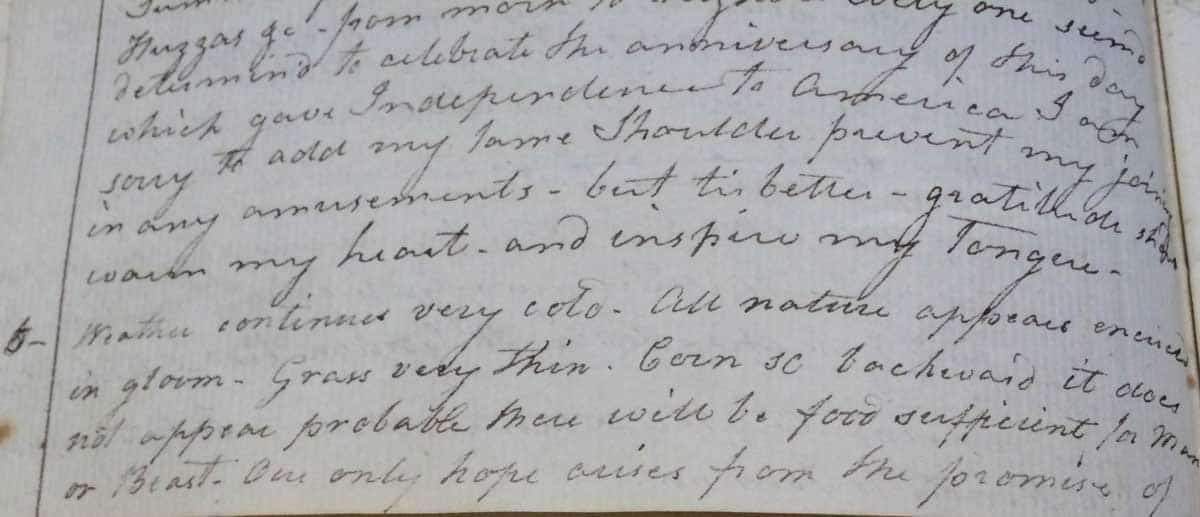 Huzzas &c - from morn to night every one seem'd
determin'd to celebrate the anniversary of this day
which gave Independence to America I am
sorry to add my lame Shoulder prevent my joining
in any amusements - but tis better - gratitude
warm my heart - and inspire my Tongue -
6 - Weather continues very cold - All nature appears encircled
in gloom - Grass very thin . Corn so backward it does
not appear probable there will be food sufficient for Man
or Beast - Our only hope arises from the promise of